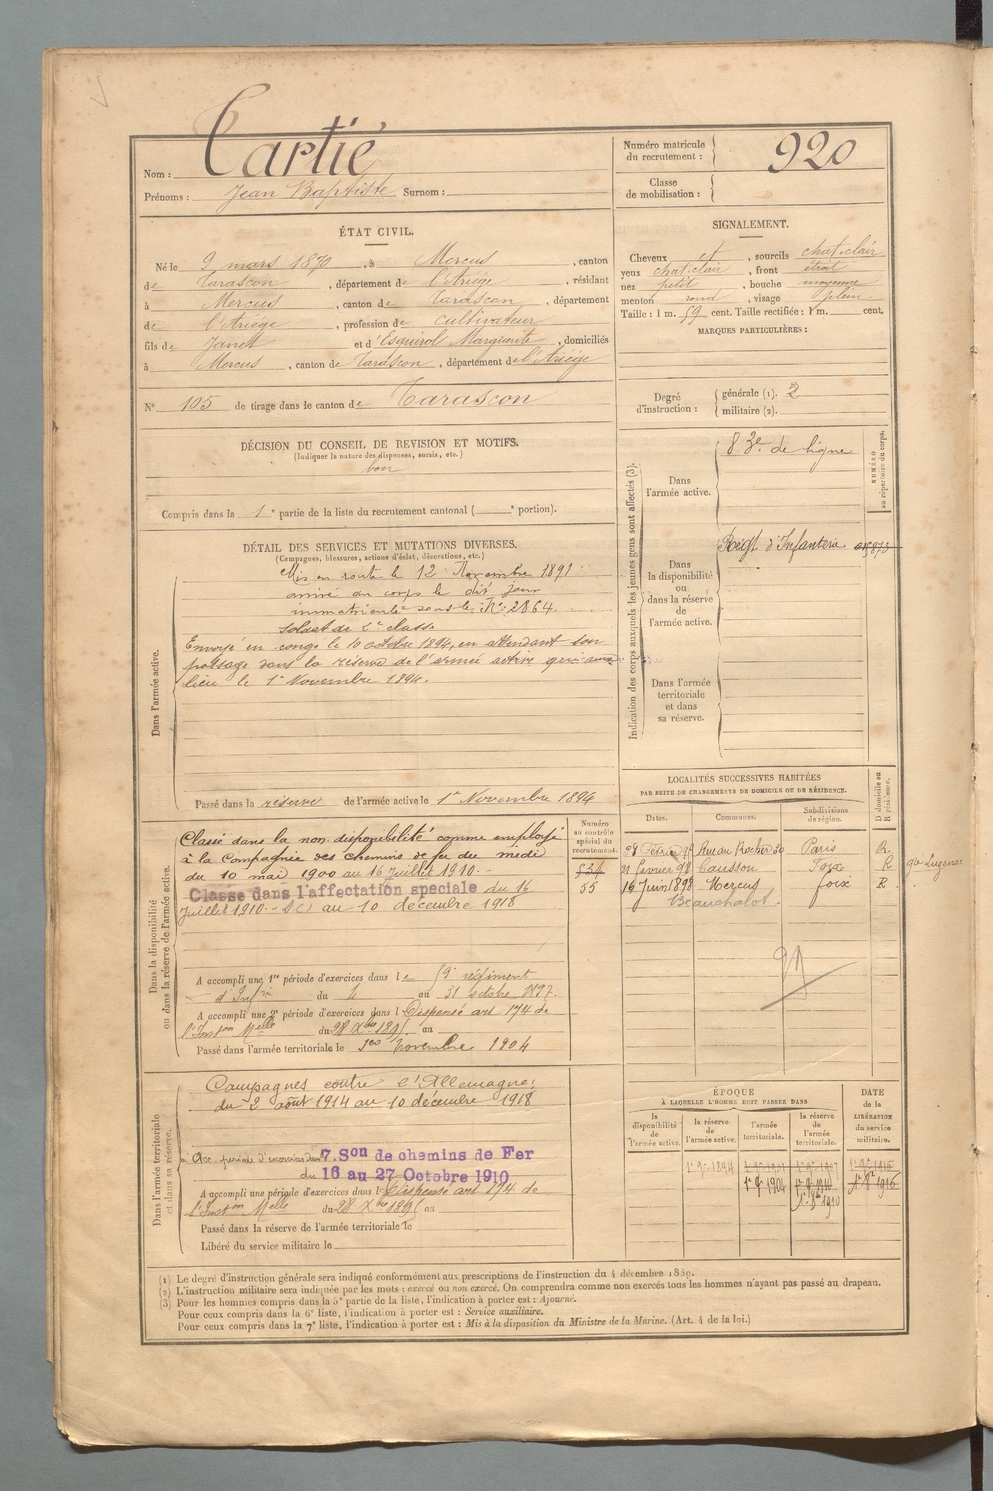 Cartié
Nom :
Prénoms : Jean Baptiste Surnom :
Numéro matricule du recrutement : 920
Classe de mobilisation :
ÉTAT CIVIL.
Né le 9 mars 1870, à Mercus, canton
de Tarascon, département de l'Ariège, résidant
à Mercus, canton de Tarascon, département
de l'Ariège, profession de cultivateur
fils de Janet et d'Esquirol Marguerite, domiciliés
à Mercus, canton de Tarascon, département de l'Ariège
N° 105 de tirage dans le canton de Tarascon
SIGNALEMENT.
Cheveux et, sourcils chat. clair
yeux chat. clair, front étroit
nez petit, bouche moyenne
menton rond, visage plein
Taille : 1 m. 59 cent. Taille rectifiée : 1 m. cent.
MARQUES PARTICULIÈRES :
Degré d'instruction : générale (1). 2
militaire (2).
DÉCISION DU CONSEIL DE REVISION ET MOTIFS.
(Indiquer la nature des dispenses, sursis, etc.)
bon
Compris dans la 1e partie de la liste du recrutement cantonal ( e portion).
DÉTAIL DES SERVICES ET MUTATIONS DIVERSES.
(Campagnes, blessures, actions d'éclat, décorations, etc.)
Dans l'armée active.
Mis en route le 12 Novembre 1891
arrivé au corps le dit jour
immatriculé sous le N° 2864.
Soldat de 2e classe
Envoyé en congé le 10 octobre 1894, en attendant son
passage dans la réserve de l'armée active qui aura
lieu le 1er Novembre 1894.
Passé dans la réserve de l'armée active le 1er Novembre 1894
Indication des corps auxquels les jeunes gens sont affectés (3).
NUMÉRO au répertoire du corps.
Dans l'armée active.
83e de ligne
Dans la disponibilité ou dans la réserve de l'armée active.
Régt d'Infanterie
Dans l'armée territoriale et dans sa réserve.
Dans la disponibilité ou dans la réserve de l'armée active.
Numéro au contrôle spécial du recrutement.
Classé dans la non disponibilité comme employé
à la Compagnie des chemins de fer du midi
du 10 mai 1900 au 16 juillet 1910.
Classé dans l'affectation spéciale du 16
Juillet 1910 au 10 décembre 1918
534
55
A accompli une 1re période d'exercices dans le 59e régiment
d'Infrie du 4 au 31 octobre 1897.
A accompli une 2e période d'exercices dans l Dispensé art 174 de
l'Inston Melle du 28 Xbre 1895 au
Passé dans l'armée territoriale le 1er novembre 1904
LOCALITÉS SUCCESSIVES HABITÉES
PAR SUITE DE CHANGEMENTS DE DOMICILE OU DE RÉSIDENCE.
Dates. Communes. Subdivisions de région. D domicile ou R résidence.
Rue du Rocher 30 Paris R.
21 Janvier 98 Caussou Foix R gre Luzenac
16 Juin 1898 Mercus foix R
Beauchalot
Dans l'armée territoriale et dans sa réserve.
Campagnes contre l'Allemagne :
du 2 août 1914 au 10 décembre 1918
a acc. période d'exercices dans 7. Son de chemins de Fer
du 16 au 27 Octobre 1910
A accompli une période d'exercices dans l Dispensé art 174 de
l'Inston Melle du 28 Xbre 1895 au
Passé dans la réserve de l'armée territoriale le
Libéré du service militaire le
ÉPOQUE
À LAQUELLE L'HOMME DOIT PASSER DANS
la disponibilité de l'armée active.
la réserve de l'armée active.
l'armée territoriale.
la réserve de l'armée territoriale.
DATE de la LIBÉRATION du service militaire.
1er 9bre 1894
1er 9bre 1904
1er 9bre 1910
1916
(1) Le degré d'instruction générale sera indiqué conformément aux prescriptions de l'instruction du 4 décembre 1889.
(2) L'instruction militaire sera indiquée par les mots : exercé ou non exercé. On comprendra comme non exercés tous les hommes n'ayant pas passé au drapeau.
(3) Pour les hommes compris dans la 5e partie de la liste, l'indication à porter est : Ajourné.
Pour ceux compris dans la 6e liste, l'indication à porter est : Service auxiliaire.
Pour ceux compris dans la 7e liste, l'indication à porter est : Mis à la disposition du Ministre de la Marine. (Art. 4 de la loi.)